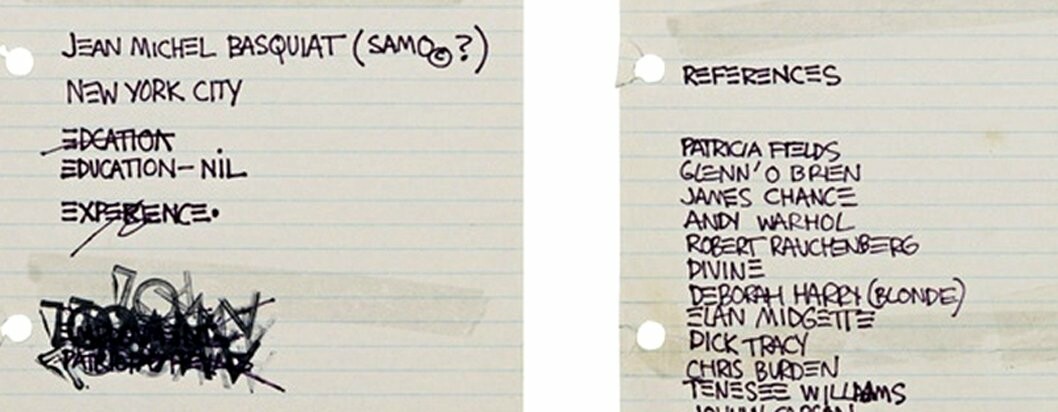 JEAN MICHEL BASQUIAT (SAMO©?)
NEW YORK CITY
EDCATION
EDUCATION - NIL
EXPERIENCE.
REFERENCES
PATRICIA FIELDS
GLENN'O BRIEN
JAMES CHANCE
ANDY WARHOL
ROBERT RAUCHENBERG
DIVINE
DEBORAH HARRY (BLONDE)
ELAN MIDGETTE
DICK TRACY
CHRIS BURDEN
TENESEE WILLIAMS